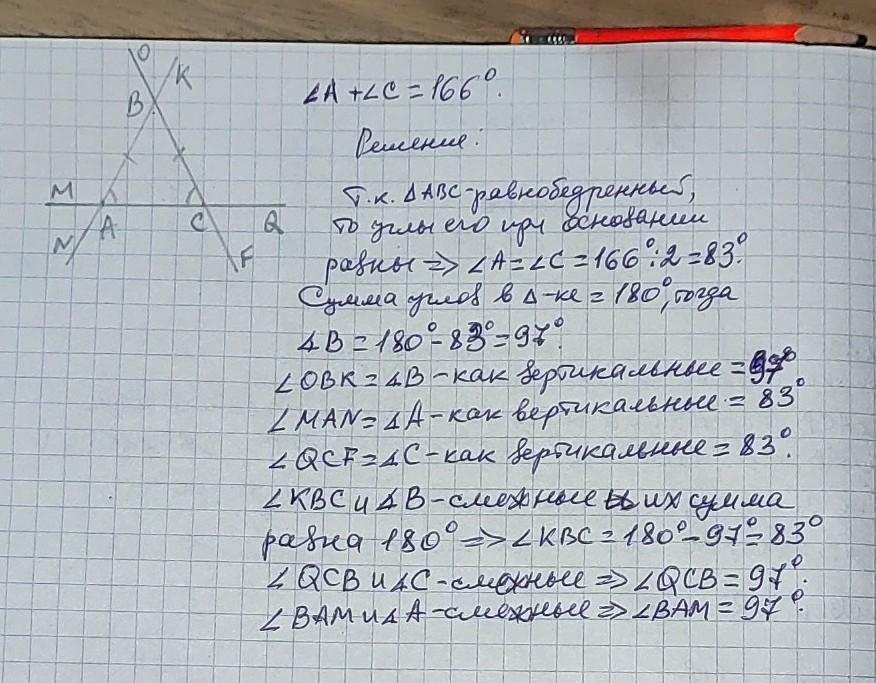 O
K
B
M
A
C
Q
N
F
∠A + ∠C = 166°.
Решение:
Т.к. ΔABC-равнобедренный,
то углы его при основании
равны => ∠A = ∠C = 166°:2 = 83°.
Сумма углов в Δ-ке = 180°, тогда
∠B = 180° - 83° = 97°.
∠OBK = ∠B - как вертикальные = 97°
∠MAN = ∠A - как вертикальные = 83°
∠QCF = ∠C - как вертикальные = 83°.
∠KBC и ∠B - смежные их сумма
равна 180° => ∠KBC = 180° - 97° = 83°
∠QCB и ∠C - смежные => ∠QCB = 97°.
∠BAM и ∠A - смежные => ∠BAM = 97°.